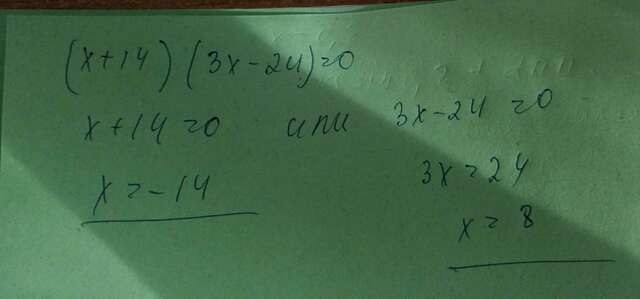 (x+14) (3x-24)=0
x+14=0 или 3x-24=0
3x=24
x=-14
x=8